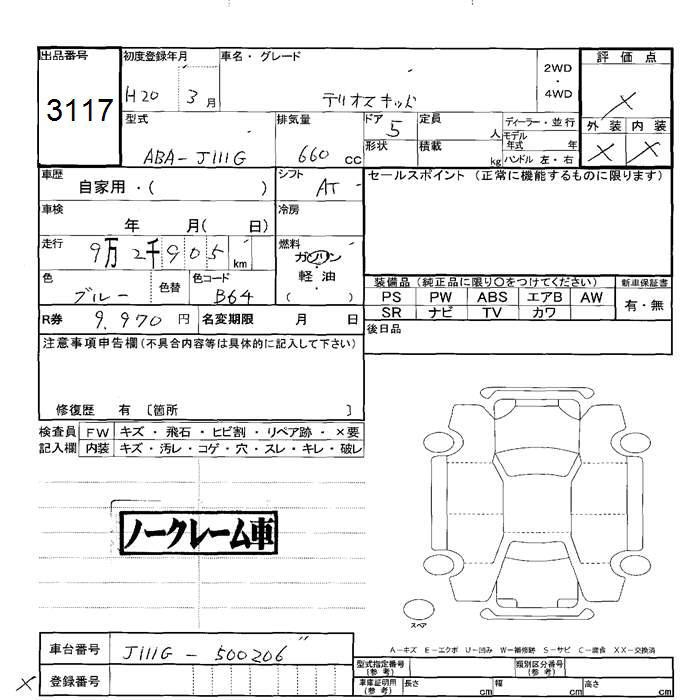 出品番号 初度登録年月 車名・グレード 2WD・4WD 評価点
3117 H20 3月 テリオスキッド X
型式 排気量 ドア 5 定員 人 ディーラー・並行 外装 内装
ABA-J111G 660cc 形状 積載 kg モデル年式 年 X X
ハンドル 左・右
車歴 自家用・( ) シフト AT セールスポイント (正常に機能するものに限ります)
車検 年 月( 日) 冷房
走行 9万2千905km 燃料 ガソリン・軽油 ( )
色 ブルー 色替 色コード B64
装備品 (純正品に限り○をつけてください) 新車保証書
PS PW ABS エアB AW 有・無
SR ナビ TV カワ
R券 9.970円 名変期限 月 日 後日品
注意事項申告欄(不具合内容等は具体的に記入して下さい)
修復歴 有 〔箇所 〕
検査員 FW キズ・飛石・ヒビ割・リペア跡・×要
記入欄 内装 キズ・汚レ・コゲ・穴・スレ・キレ・破レ
ノークレーム車
スペア
A-キズ E-エクボ U-凹み W-補修跡 S-サビ C-腐食 XX-交換済
車台番号 J111G-500206〃
型式指定番号(参考) 類別区分番号(参考)
X 登録番号
車庫証明用(参考) 長さ cm 幅 cm 高さ cm